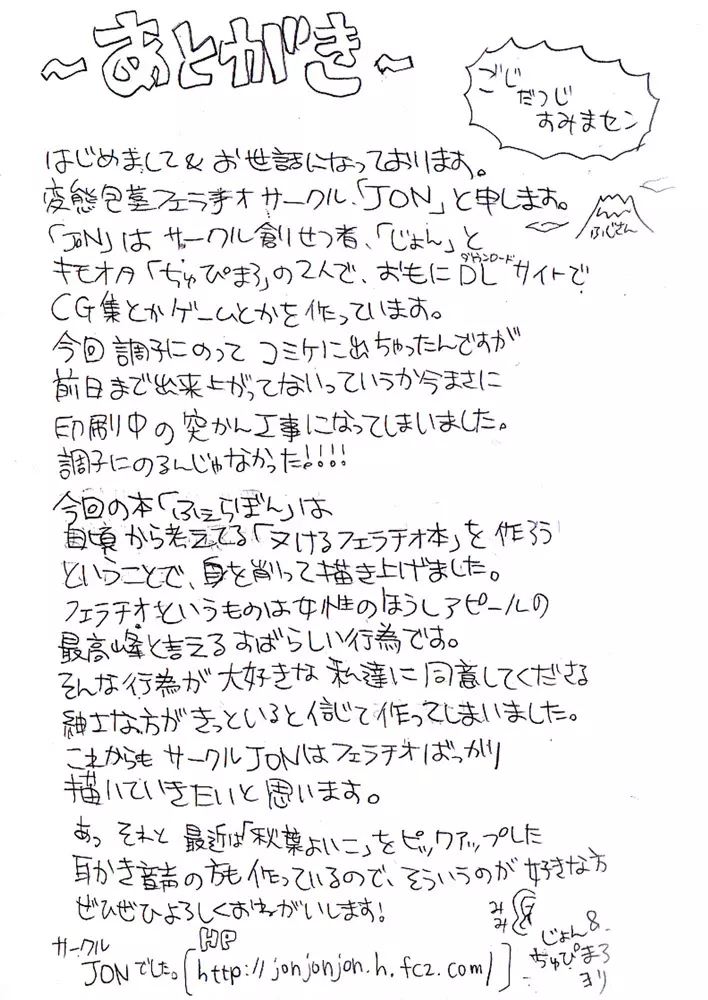 ～あとがき～
ごじ
だつじ
すみまセン
はじめまして＆お世話になっております。
変態包茎フェラチオサークル、「JON」と申します。
ふじさん
「JON」はサークル創りせつ者、「じょん」と
キモオタ「ぢゅぴまろ」の2人で、おもにDLサイトで
ダウンロード
CG集とかゲームとかを作っています。
今回調子にのってコミケに出ちゃったんですが
前日まで出来上がってないっていうか今まさに
印刷中の突かん工事になってしまいました。
調子にのるんじゃなかった!!!!
今回の本「ふぇらぼん」は
日頃から考えてる「ヌけるフェラチオ本」を作ろう
ということで、身を削って描き上げました。
フェラチオというものは女性のほうしアピールの
最高峰と言えるすばらしい行為です。
そんな行為が大好きな私達に同意してくださる
紳士な方がきっといると信じて作ってしまいました。
これからもサークルJONはフェラチオばっかり
描いていきたいと思います。
あっ それと 最近は「秋葉よいこ」をピックアップした
耳かき音声の方も作っているので、そういうのが好きな方
ぜひぜひよろしくおねがいします!
みみ
サークル
JONでした。
HP
http://jonjonjon.h.fc2.com/
じょん＆
ぢゅぴまろ
ヨリ